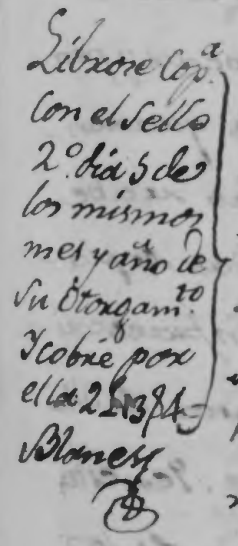 Librose Cop.ª
con el Sello
2.º dia 5 de
los mismos
mes y año de
su Otorgam.to
Y cobré por
ella
Blanes